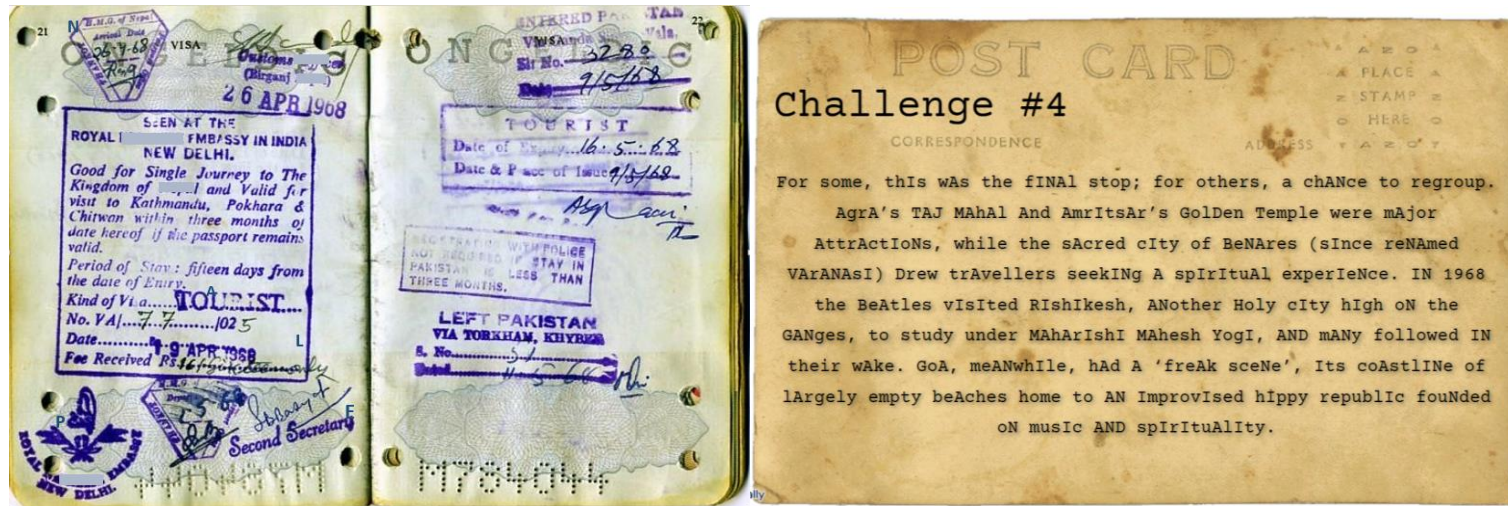 21
N
H.M.G. of Nepal
Arrival Date
26-4-68
VISA
Customs
(Birganj
26 APR 1968
SEEN AT THE
ROYAL EMBASSY IN INDIA
NEW DELHI.
Good for Single Journey to The
Kingdom of and Valid for
visit to Kathmandu, Pokhara &
Chitwan within three months of
date hereof if the passport remains
valid.
Period of Stay : fifteen days from
the date of Entry.
A
Kind of Visa......TOURIST....
No. VA|....77.........|025
L
Date..........19 APR 1968
Fee Received Rs.
P
E
Second Secretary
ROYAL EMBASSY
NEW DELHI.
22
ENTERED PAKISTAN
VISA
Sl: No. 3280
Date 9/5/68
TOURIST
Date of Expiry....16.5.68
Date & Place of Issue 9/5/68
REGISTRATION WITH POLICE
NOT REQUIRED IF STAY IN
PAKISTAN IS LESS THAN
THREE MONTHS.
LEFT PAKISTAN
VIA TORKHAM, KHYBER
S. No.
Dated
M764044
POST CARD
AZO
PLACE
STAMP
HERE
AZOT
Challenge #4
CORRESPONDENCE
ADDRESS
For some, thIs wAs the fINAl stop; for others, a chANce to regroup.
AgrA's TAJ MAhAl And AmrItsAr's GolDen Temple were mAjor
AttrActIoNs, while the sAcred cIty of BeNAres (sInce reNAmed
VArANAsI) Drew trAvellers seekINg A spIrItuAl experIeNce. IN 1968
the BeAtles vIsIted RIshIkesh, ANother Holy cIty hIgh oN the
GANges, to study under MAhArIshI MAhesh YogI, AND mANy followed IN
their wAke. GoA, meANwhIle, hAd A 'freAk sceNe', Its coAstlINe of
lArgely empty beAches home to AN ImprovIsed hIppy republIc fouNded
oN musIc AND spIrItuAlIty.